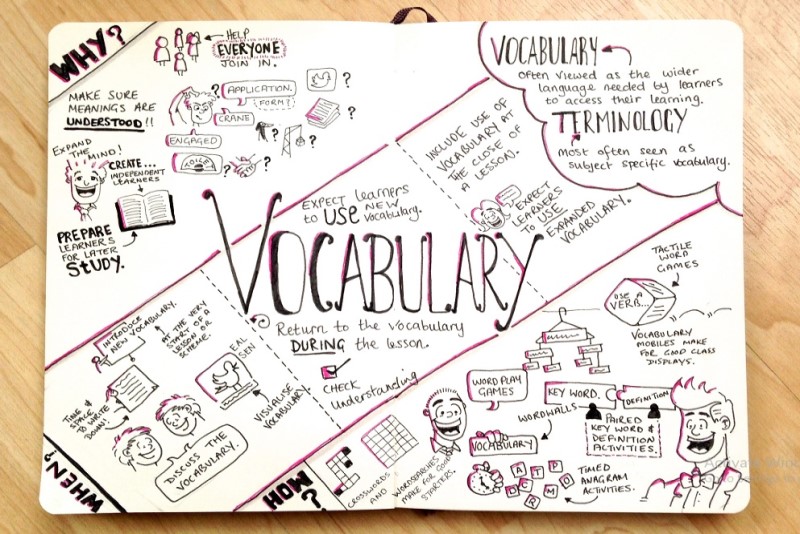 WHY?
HELP
EVERYONE
JOIN IN.
MAKE SURE
MEANINGS ARE
UNDERSTOOD!!
APPLICATION.
FORM?
CRANE
ENGAGED
TOILET
EXPAND
THE MIND!
CREATE...
INDEPENDENT
LEARNERS
PREPARE
LEARNERS
FOR LATER
STUDY.
VOCABULARY
Often viewed as the wider
language needed by learners
to access their learning.
TERMINOLOGY
Most often seen as
subject specific vocabulary.
INCLUDE USE OF
VOCABULARY AT
THE CLOSE OF
A LESSON.
EXPECT
LEARNERS
TO USE
EXPANDED
VOCABULARY.
EXPECT learners
to USE NEW
vocabulary.
VOCABULARY
Return to the vocabulary
DURING the lesson.
CHECK
Understanding
INTRODUCE
NEW VOCABULARY.
AT THE VERY
START OF A
LESSON OR
SCHEME.
TIME &
SPACE
TO WRITE
DOWN!
EAL
SEN
VISUALISE
VOCABULARY
DISCUSS THE
VOCABULARY.
WHEN?
HOW?
CROSSWORDS
AND
WORDSEARCHES
MAKE FOR GOOD
STARTERS.
WORD PLAY
GAMES
WORDWALLS
VOCABULARY
TACTILE
WORD
GAMES
USE A
VERB...
VOCABULARY
MOBILES MAKE
FOR GOOD CLASS
DISPLAYS.
KEY WORD.
DEFINITION
PAIRED
KEY WORD &
DEFINITION
ACTIVITIES.
A T P
D C R M O
TIMED
ANAGRAM
ACTIVITIES.